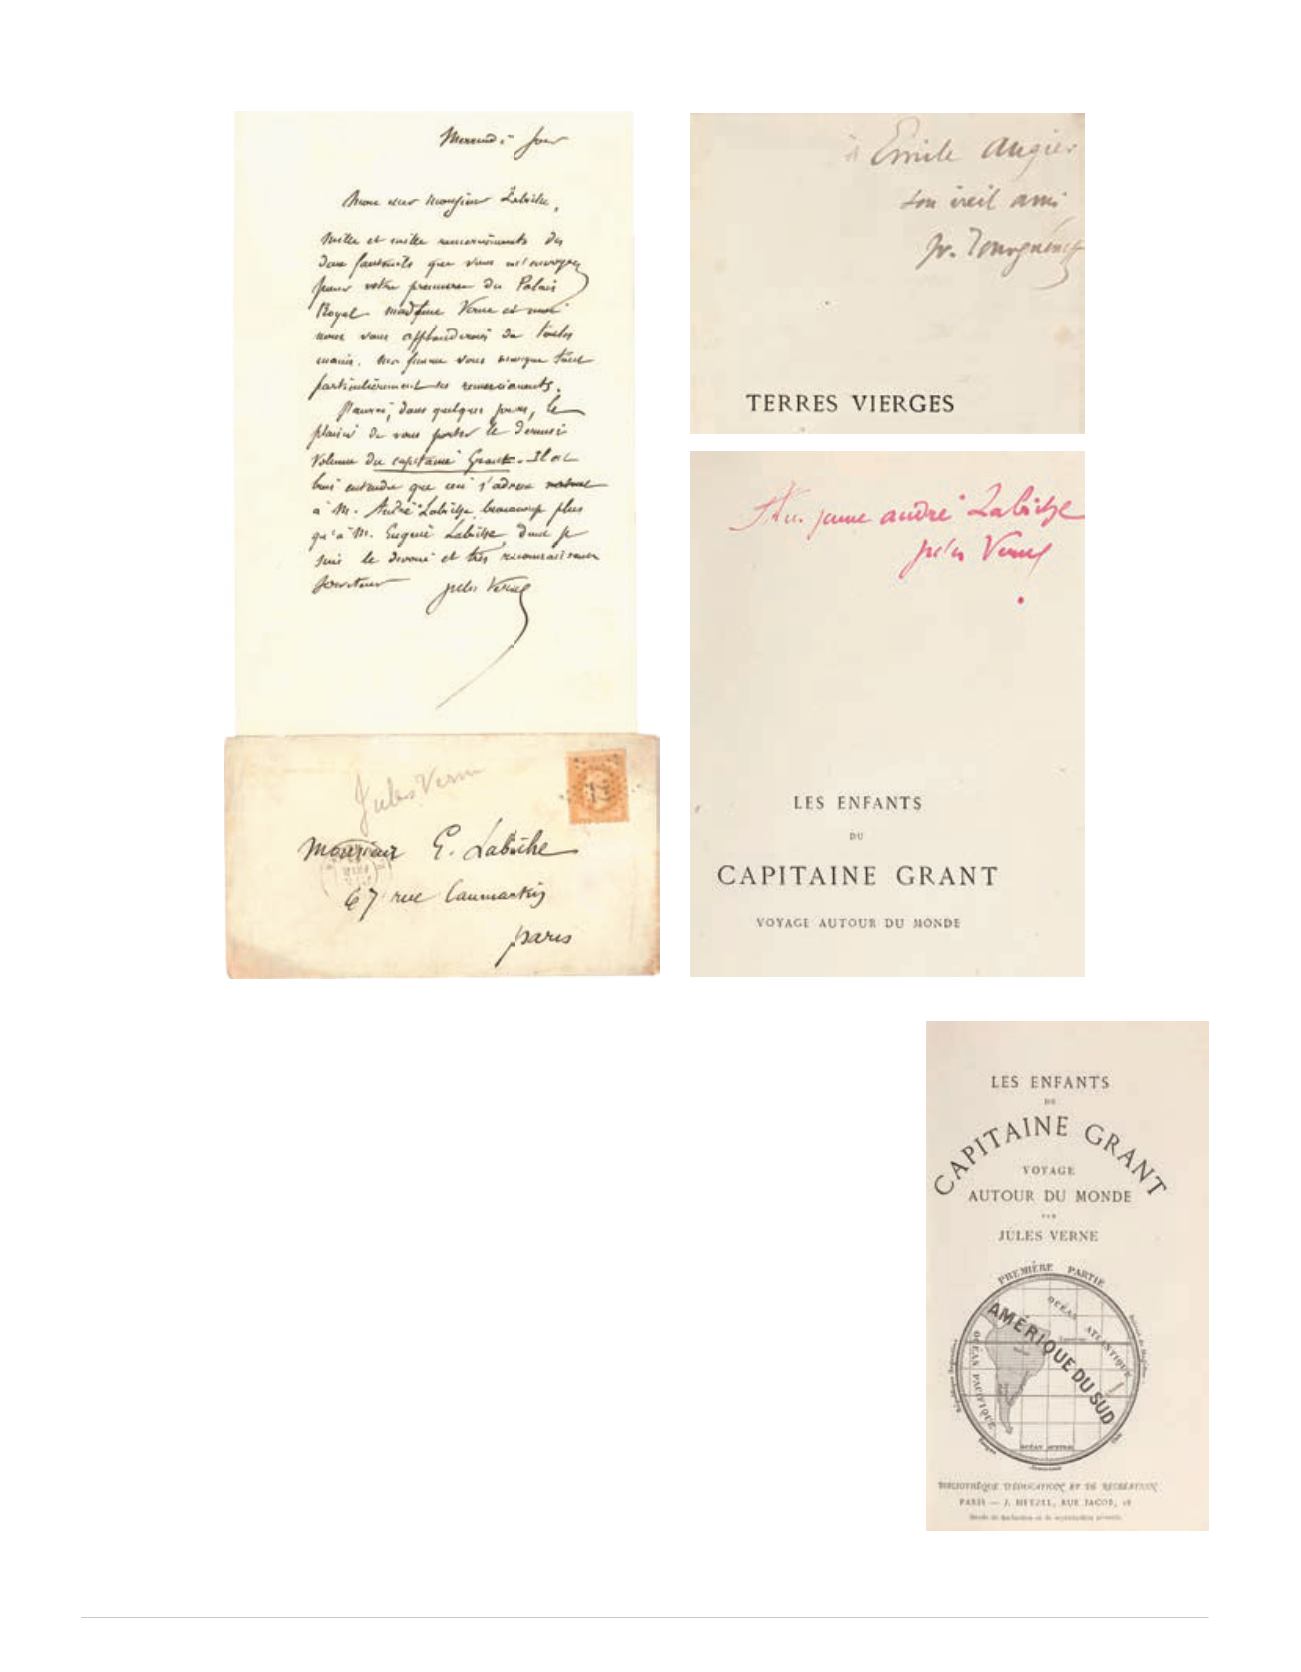 Mercredi soir
Mon cher Monsieur Labiche,
Mille et mille remerciements des
deux fauteuils que vous m'envoyez
pour votre première du Palais
Royal madame Verne et moi
nous vous applaudirons de toutes
mains. Ma femme vous envoye tout
particulièrement ses remerciements.
J'aurai, dans quelques jours, le
plaisir de vous porter le dernier
volume du capitaine Grant. Il est
bien entendu que ceci s'adresse
à M. André Labiche beaucoup plus
qu'à M. Eugène Labiche, dont je
suis le dévoué et très reconnaissant
serviteur
Jules Verne
Jules Verne
Monsieur E. Labiche
67 rue Caumartin
Paris
à Emile Augier
son vieil ami
Iv. Tourguéneff
TERRES VIERGES
Au jeune André Labiche
Jules Verne
LES ENFANTS
DU
CAPITAINE GRANT
VOYAGE AUTOUR DU MONDE
LES ENFANTS
DU
CAPITAINE GRANT
VOYAGE
AUTOUR DU MONDE
PAR
JULES VERNE
PREMIÈRE PARTIE
AMÉRIQUE DU SUD
OCÉAN ATLANTIQUE
OCÉAN PACIFIQUE
OCÉAN AUSTRAL
BIBLIOTHÈQUE D'ÉDUCATION ET DE RÉCRÉATION
PARIS — J. HETZEL, RUE JACOB, 18
Droits de traduction et de reproduction réservés.